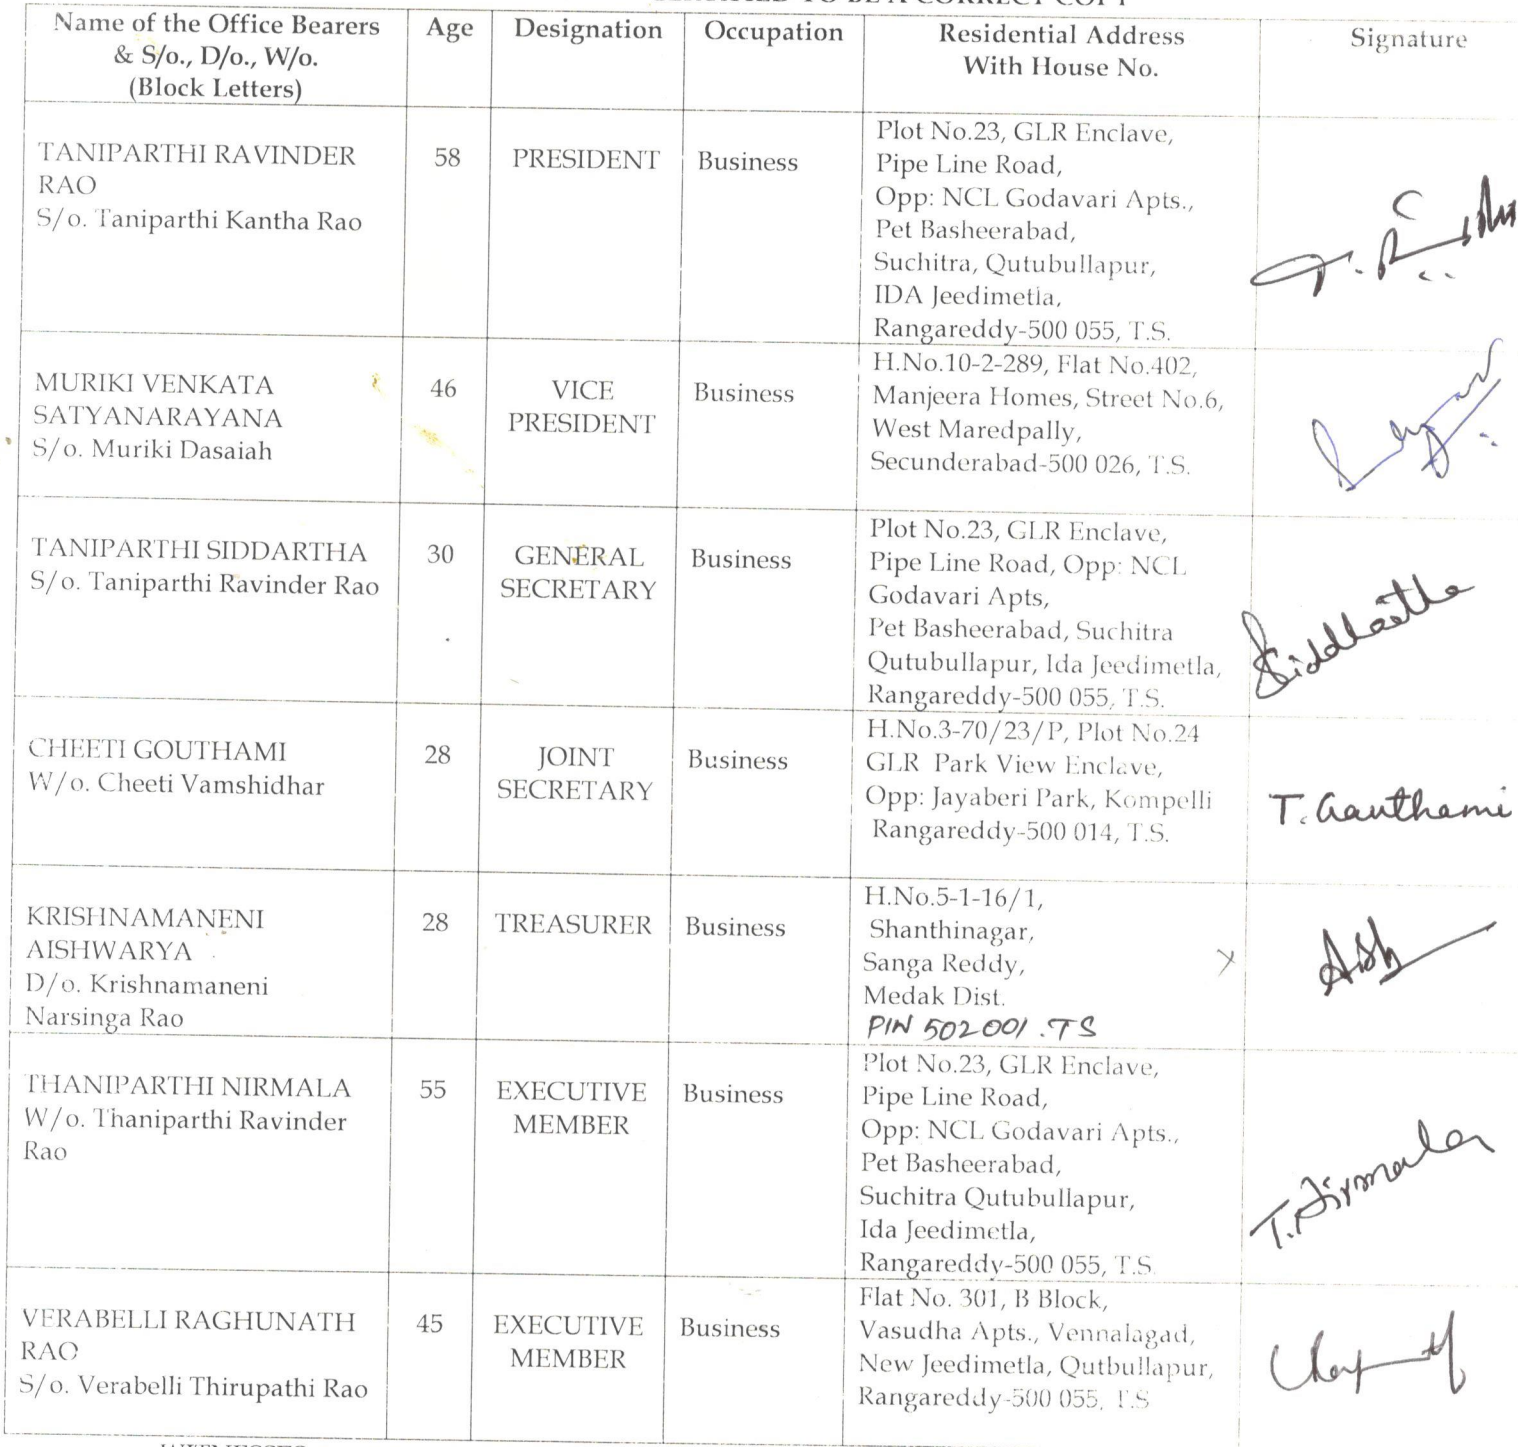 TO BE A CORRECT COPY
Name of the Office Bearers
& S/o., D/o., W/o.
(Block Letters)
Age
Designation
Occupation
Residential Address
With House No.
Signature
TANIPARTHI RAVINDER
RAO
S/o. Taniparthi Kantha Rao
58
PRESIDENT
Business
Plot No.23, GLR Enclave,
Pipe Line Road,
Opp: NCL Godavari Apts.,
Pet Basheerabad,
Suchitra, Qutubullapur,
IDA Jeedimetla,
Rangareddy-500 055, T.S.
MURIKI VENKATA
SATYANARAYANA
S/o. Muriki Dasaiah
46
VICE
PRESIDENT
Business
H.No.10-2-289, Flat No.402,
Manjeera Homes, Street No.6,
West Maredpally,
Secunderabad-500 026, T.S.
TANIPARTHI SIDDARTHA
S/o. Taniparthi Ravinder Rao
30
GENERAL
SECRETARY
Business
Plot No.23, GLR Enclave,
Pipe Line Road, Opp: NCL
Godavari Apts,
Pet Basheerabad, Suchitra
Qutubullapur, Ida Jeedimetla,
Rangareddy-500 055, T.S.
Siddhartha
CHEETI GOUTHAMI
W/o. Cheeti Vamshidhar
28
JOINT
SECRETARY
Business
H.No.3-70/23/P, Plot No.24
GLR Park View Enclave,
Opp: Jayaberi Park, Kompelli
Rangareddy-500 014, T.S.
T. Gauthami
KRISHNAMANENI
AISHWARYA
D/o. Krishnamaneni
Narsinga Rao
28
TREASURER
Business
H.No.5-1-16/1,
Shanthinagar,
Sanga Reddy,
Medak Dist.
PIN 502001 .TS
THANIPARTHI NIRMALA
W/o. Thaniparthi Ravinder
Rao
55
EXECUTIVE
MEMBER
Business
Plot No.23, GLR Enclave,
Pipe Line Road,
Opp: NCL Godavari Apts.,
Pet Basheerabad,
Suchitra Qutubullapur,
Ida Jeedimetla,
Rangareddy-500 055, T.S.
T. Nirmala
VERABELLI RAGHUNATH
RAO
S/o. Verabelli Thirupathi Rao
45
EXECUTIVE
MEMBER
Business
Flat No. 301, B Block,
Vasudha Apts., Vennalagad,
New Jeedimetla, Qutbullapur,
Rangareddy-500 055, T.S